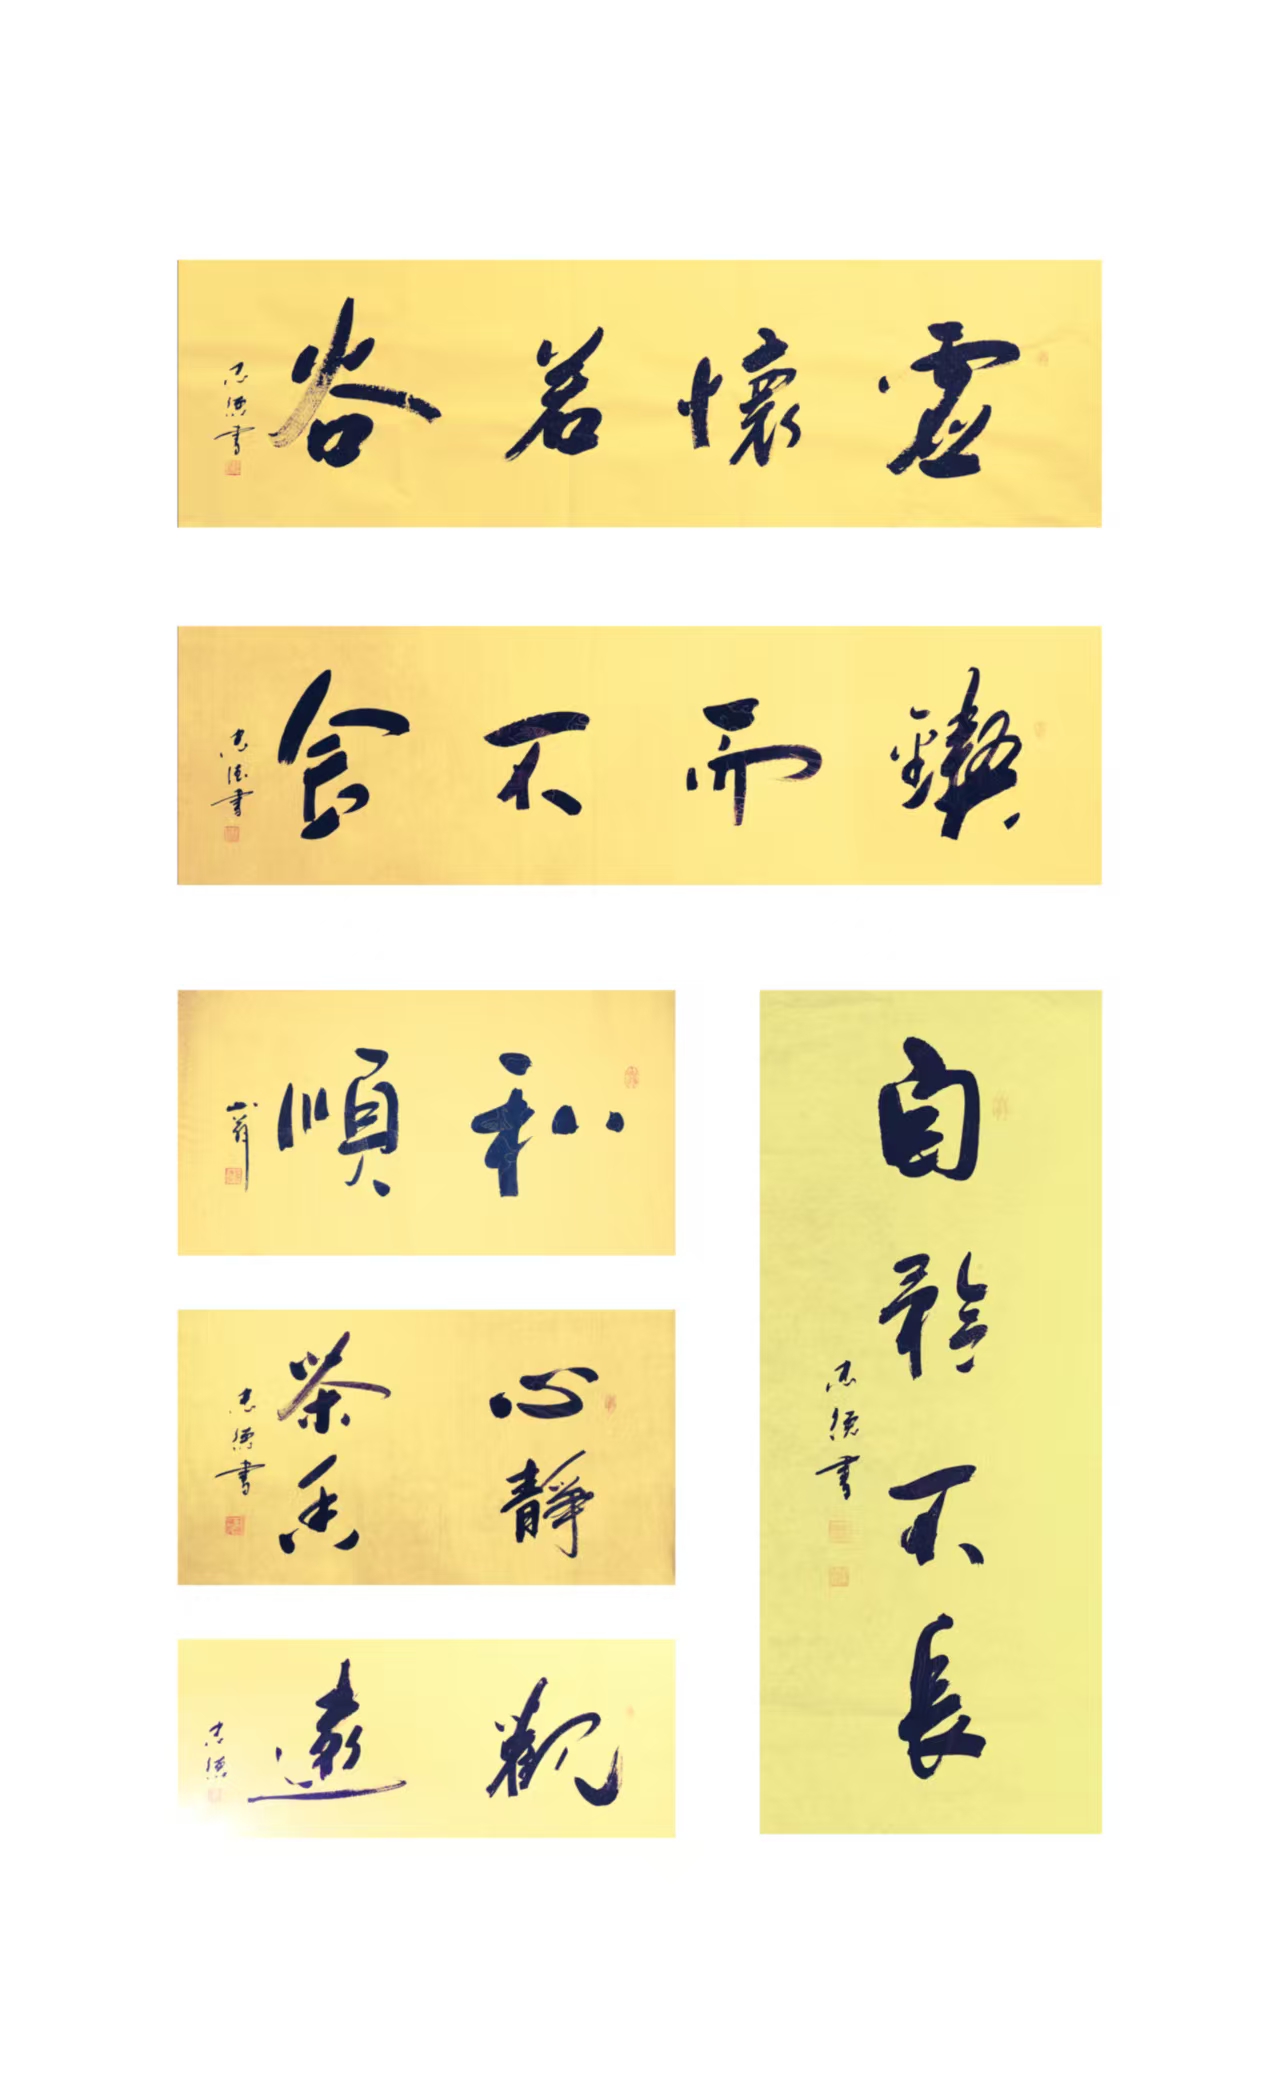 虛懷若谷
志德書
鍥而不舍
志德書
和順
心靜
茶香
志德書
觀遠
志德
自矜不長
志德書